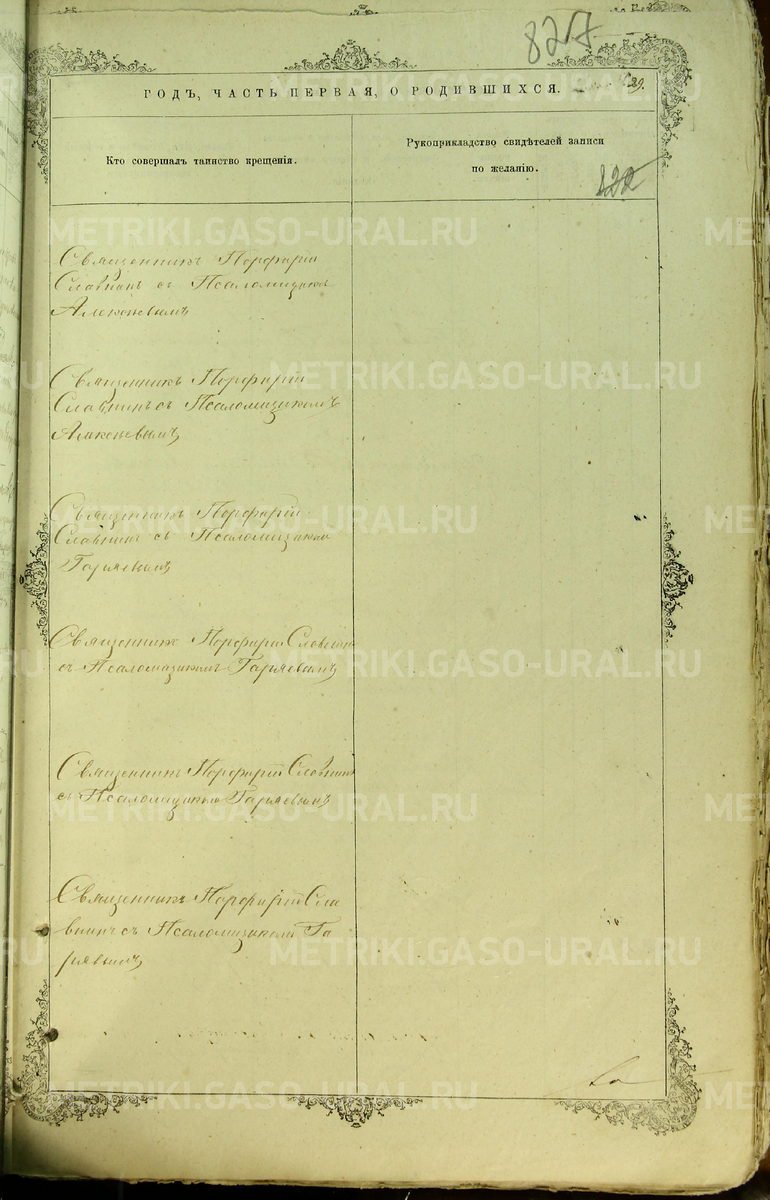 827
ГОДЪ, ЧАСТЬ ПЕРВАЯ, О РОДИВШИХСЯ.
29.
Кто совершалъ таинство крещенія.
Рукоприкладство свидѣтелей записи
по желанію.
METRIKI.GASO-URAL.RU
Священникъ Порфирій
Славнинъ съ Псаломщикомъ
Священникъ Порфирій
Славнинъ съ Псаломщикомъ
Священникъ Порфирій
Славнинъ съ Псаломщикомъ
Гаряевымъ
Священникъ Порфирій Славнинъ
съ Псаломщикомъ Гаряевымъ
Священникъ Порфирій Славнинъ
съ Псаломщикомъ Гаряевымъ
Священникъ Порфирій Сла
внинъ съ Псаломщикомъ Га
ряевымъ